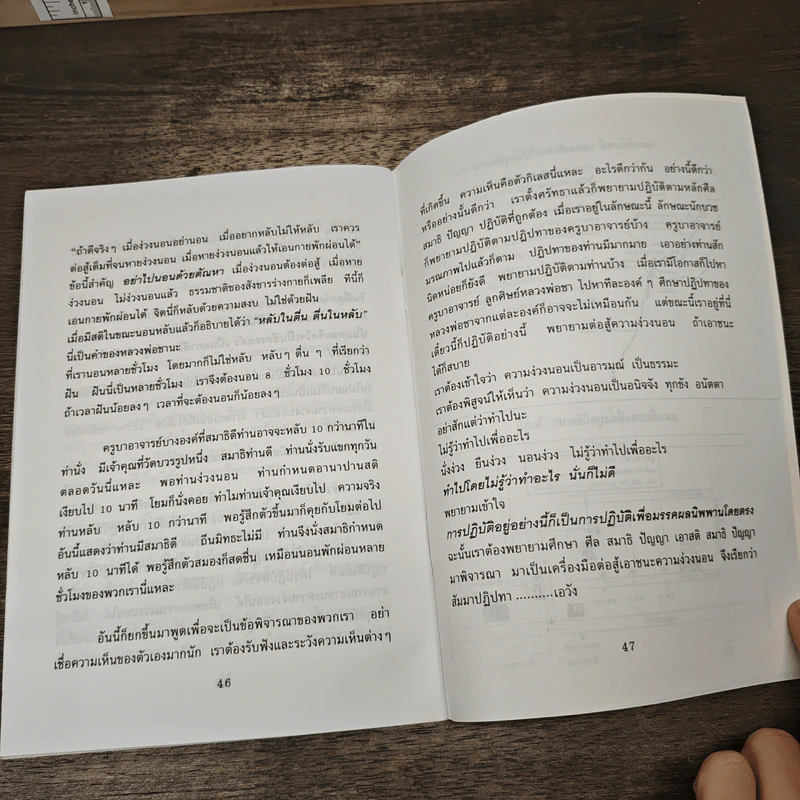 "ถ้าดีจริงๆ เมื่อง่วงนอนอย่านอน เมื่ออยากหลับไม่ให้หลับ เราควร
ต่อสู้เต็มที่จนหายง่วงนอน เมื่อหายง่วงนอนแล้วให้เอนกายพักผ่อนได้"
ข้อนี้สำคัญ อย่าไปนอนด้วยตัณหา เมื่อง่วงนอนต้องต่อสู้ เมื่อหาย
ง่วงนอน ไม่ง่วงนอนแล้ว ธรรมชาติของสังขารร่างกายก็เพลีย ทีนี้ก็
เอนกายพักผ่อนได้ จิตนี้ก็หลับด้วยความสงบ ไม่ใช่ด้วยฝัน
เมื่อมีสติในขณะนอนหลับแล้วก็อธิบายได้ว่า "หลับในตื่น ตื่นในหลับ"
นี่เป็นคำของหลวงพ่อชานะ
ที่เรานอนหลายชั่วโมง โดยมากก็ไม่ใช่หลับ หลับๆ ตื่น ๆ ที่เรียกว่า
ฝัน ฝันนี่เป็นหลายชั่วโมง เราจึงต้องนอน 8 ชั่วโมง 10 ชั่วโมง
ถ้าเวลาฝันน้อยลงๆ เวลาที่จะต้องนอนก็น้อยลงๆ
ครูบาอาจารย์บางองค์ที่สมาธิดีท่านอาจจะหลับ 10 กว่านาทีใน
ท่านั่ง มีเจ้าคุณที่วัดบวรรูปหนึ่ง สมาธิท่านดี ท่านนั่งรับแขกทุกวัน
ตลอดวันนี่แหละ พอท่านง่วงนอน ท่านกำหนดอานาปานสติ
เงียบไป 10 นาที โยมก็นั่งคอย ทำไมท่านเจ้าคุณเงียบไป ความจริง
ท่านหลับ หลับ 10 กว่านาที พอรู้สึกตัวขึ้นมาก็คุยกับโยมต่อไป
อันนี้แสดงว่าท่านมีสมาธิดี ถีนมิทธะไม่มี ท่านจึงนั่งสมาธิกำหนด
หลับ 10 นาทีได้ พอรู้สึกตัวสมองก็สดชื่น เหมือนนอนพักผ่อนหลาย
ชั่วโมงของพวกเรานี่แหละ
อันนี้ก็ยกขึ้นมาพูดเพื่อจะเป็นข้อพิจารณาของพวกเรา อย่า
เชื่อความเห็นของตัวเองมากนัก เราต้องรับฟังและระวังความเห็นต่างๆ
46
ที่เกิดขึ้น ความเห็นคือตัวกิเลสนี่แหละ อะไรดีกว่ากัน อย่างนี้ดีกว่า
หรืออย่างนั้นดีกว่า เราตั้งศรัทธาแล้วก็พยายามปฏิบัติตามหลักศีล
สมาธิ ปัญญา ปฏิบัติที่ถูกต้อง เมื่อเราอยู่ในลักษณะนี้ ลักษณะนักบวช
ก็พยายามปฏิบัติตามปฏิปทาของครูบาอาจารย์บ้าง ครูบาอาจารย์
มรณภาพไปแล้วก็ตาม ปฏิปทาของท่านมีมากมาย เอาอย่างท่านสัก
นิดหน่อยก็ยังดี พยายามปฏิบัติตามท่านบ้าง เมื่อเรามีโอกาสก็ไปหา
ครูบาอาจารย์ ลูกศิษย์หลวงพ่อชา ไปหาทีละองค์ๆ ศึกษาปฏิปทาของ
หลวงพ่อชาจากแต่ละองค์ก็อาจจะไม่เหมือนกัน แต่ขณะนี้เราอยู่ที่นี่
เดี๋ยวนี้ก็ปฏิบัติอย่างนี้ พยายามต่อสู้ความง่วงนอน ถ้าเอาชนะ
ได้ก็สบาย
เราต้องเข้าใจว่า ความง่วงนอนเป็นอารมณ์ เป็นธรรมะ
เราต้องพิสูจน์ให้เห็นว่า ความง่วงนอนเป็นอนิจจัง ทุกขัง อนัตตา
อย่าสักแต่ว่าทำไปนะ
ไม่รู้ว่าทำไปเพื่ออะไร
นั่งง่วง ยืนง่วง นอนง่วง ไม่รู้ว่าทำไปเพื่ออะไร
ทำไปโดยไม่รู้ว่าทำอะไร นั่นก็ไม่ดี
พยายามเข้าใจ
การปฏิบัติอยู่อย่างนี้ก็เป็นการปฏิบัติเพื่อมรรคผลนิพพานโดยตรง
ฉะนั้นเราต้องพยายามศึกษา ศีล สมาธิ ปัญญา เอาสติ สมาธิ ปัญญา
มาพิจารณา มาเป็นเครื่องมือต่อสู้เอาชนะความง่วงนอน จึงเรียกว่า
สัมมาปฏิปทา ..........เอวัง
47